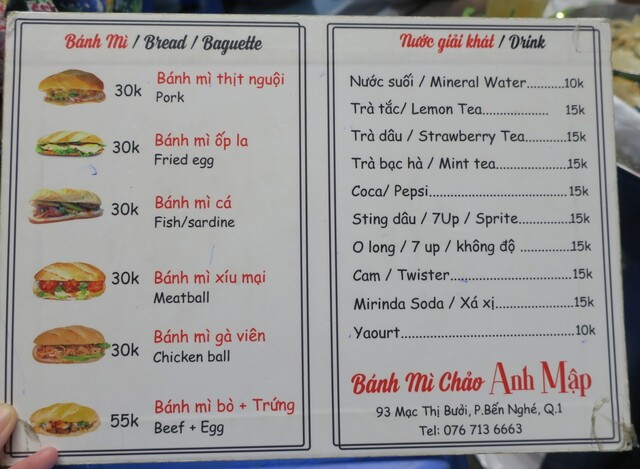 Bánh Mì / Bread / Baguette
30k Bánh mì thịt nguội
Pork
30k Bánh mì ốp la
Fried egg
30k Bánh mì cá
Fish/sardine
30k Bánh mì xíu mại
Meatball
30k Bánh mì gà viên
Chicken ball
55k Bánh mì bò + Trứng
Beef + Egg
Nước giải khát / Drink
Nước suối / Mineral Water............10k
Trà tắc/ Lemon Tea.................... 15k
Trà dâu / Strawberry Tea...........15k
Trà bạc hà / Mint tea..................15k
Coca/ Pepsi.....................................15k
Sting dâu / 7Up / Sprite..............15k
O long / 7 up / không độ ..............15k
Cam / Twister.................................15k
Mirinda Soda / Xá xị.....................15k
Yaourt..............................................10k
Bánh Mì Chảo Anh Mập
93 Mạc Thị Bưởi, P.Bến Nghé, Q.1
Tel: 076 713 6663